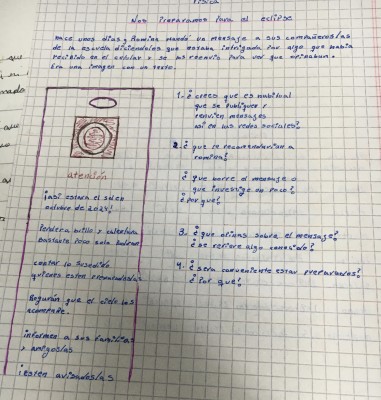 Física
Nos preparamos para el eclipse
Hace unos días, Romina mandó un mensaje a sus compañeros/as
de la escuela diciéndoles que estaba intrigada por algo que había
recibido en el celular y se los reenvía para ver que opinaban.
Era una imagen con un texto.
atención
¡así estará el sol en
octubre de 2024!
Perderá brillo y calentará
bastante poco solo
contar lo sucedido
quienes estén
Seguran que el cielo los
acompañe.
informen a sus familias
y amigos/as
¡estén avisados/as
1- ¿creés que es habitual
que se publiquen y
reenvíen mensajes
así en las redes sociales?
2. ¿que le recomendarían a
romina?
¿que borre el mensaje o
que investigue un poco?
¿por qué?
3. ¿que opinas sobre el mensaje?
¿se refiere algo conocido?
4. ¿será conveniente estar preparados?
¿Por qué?